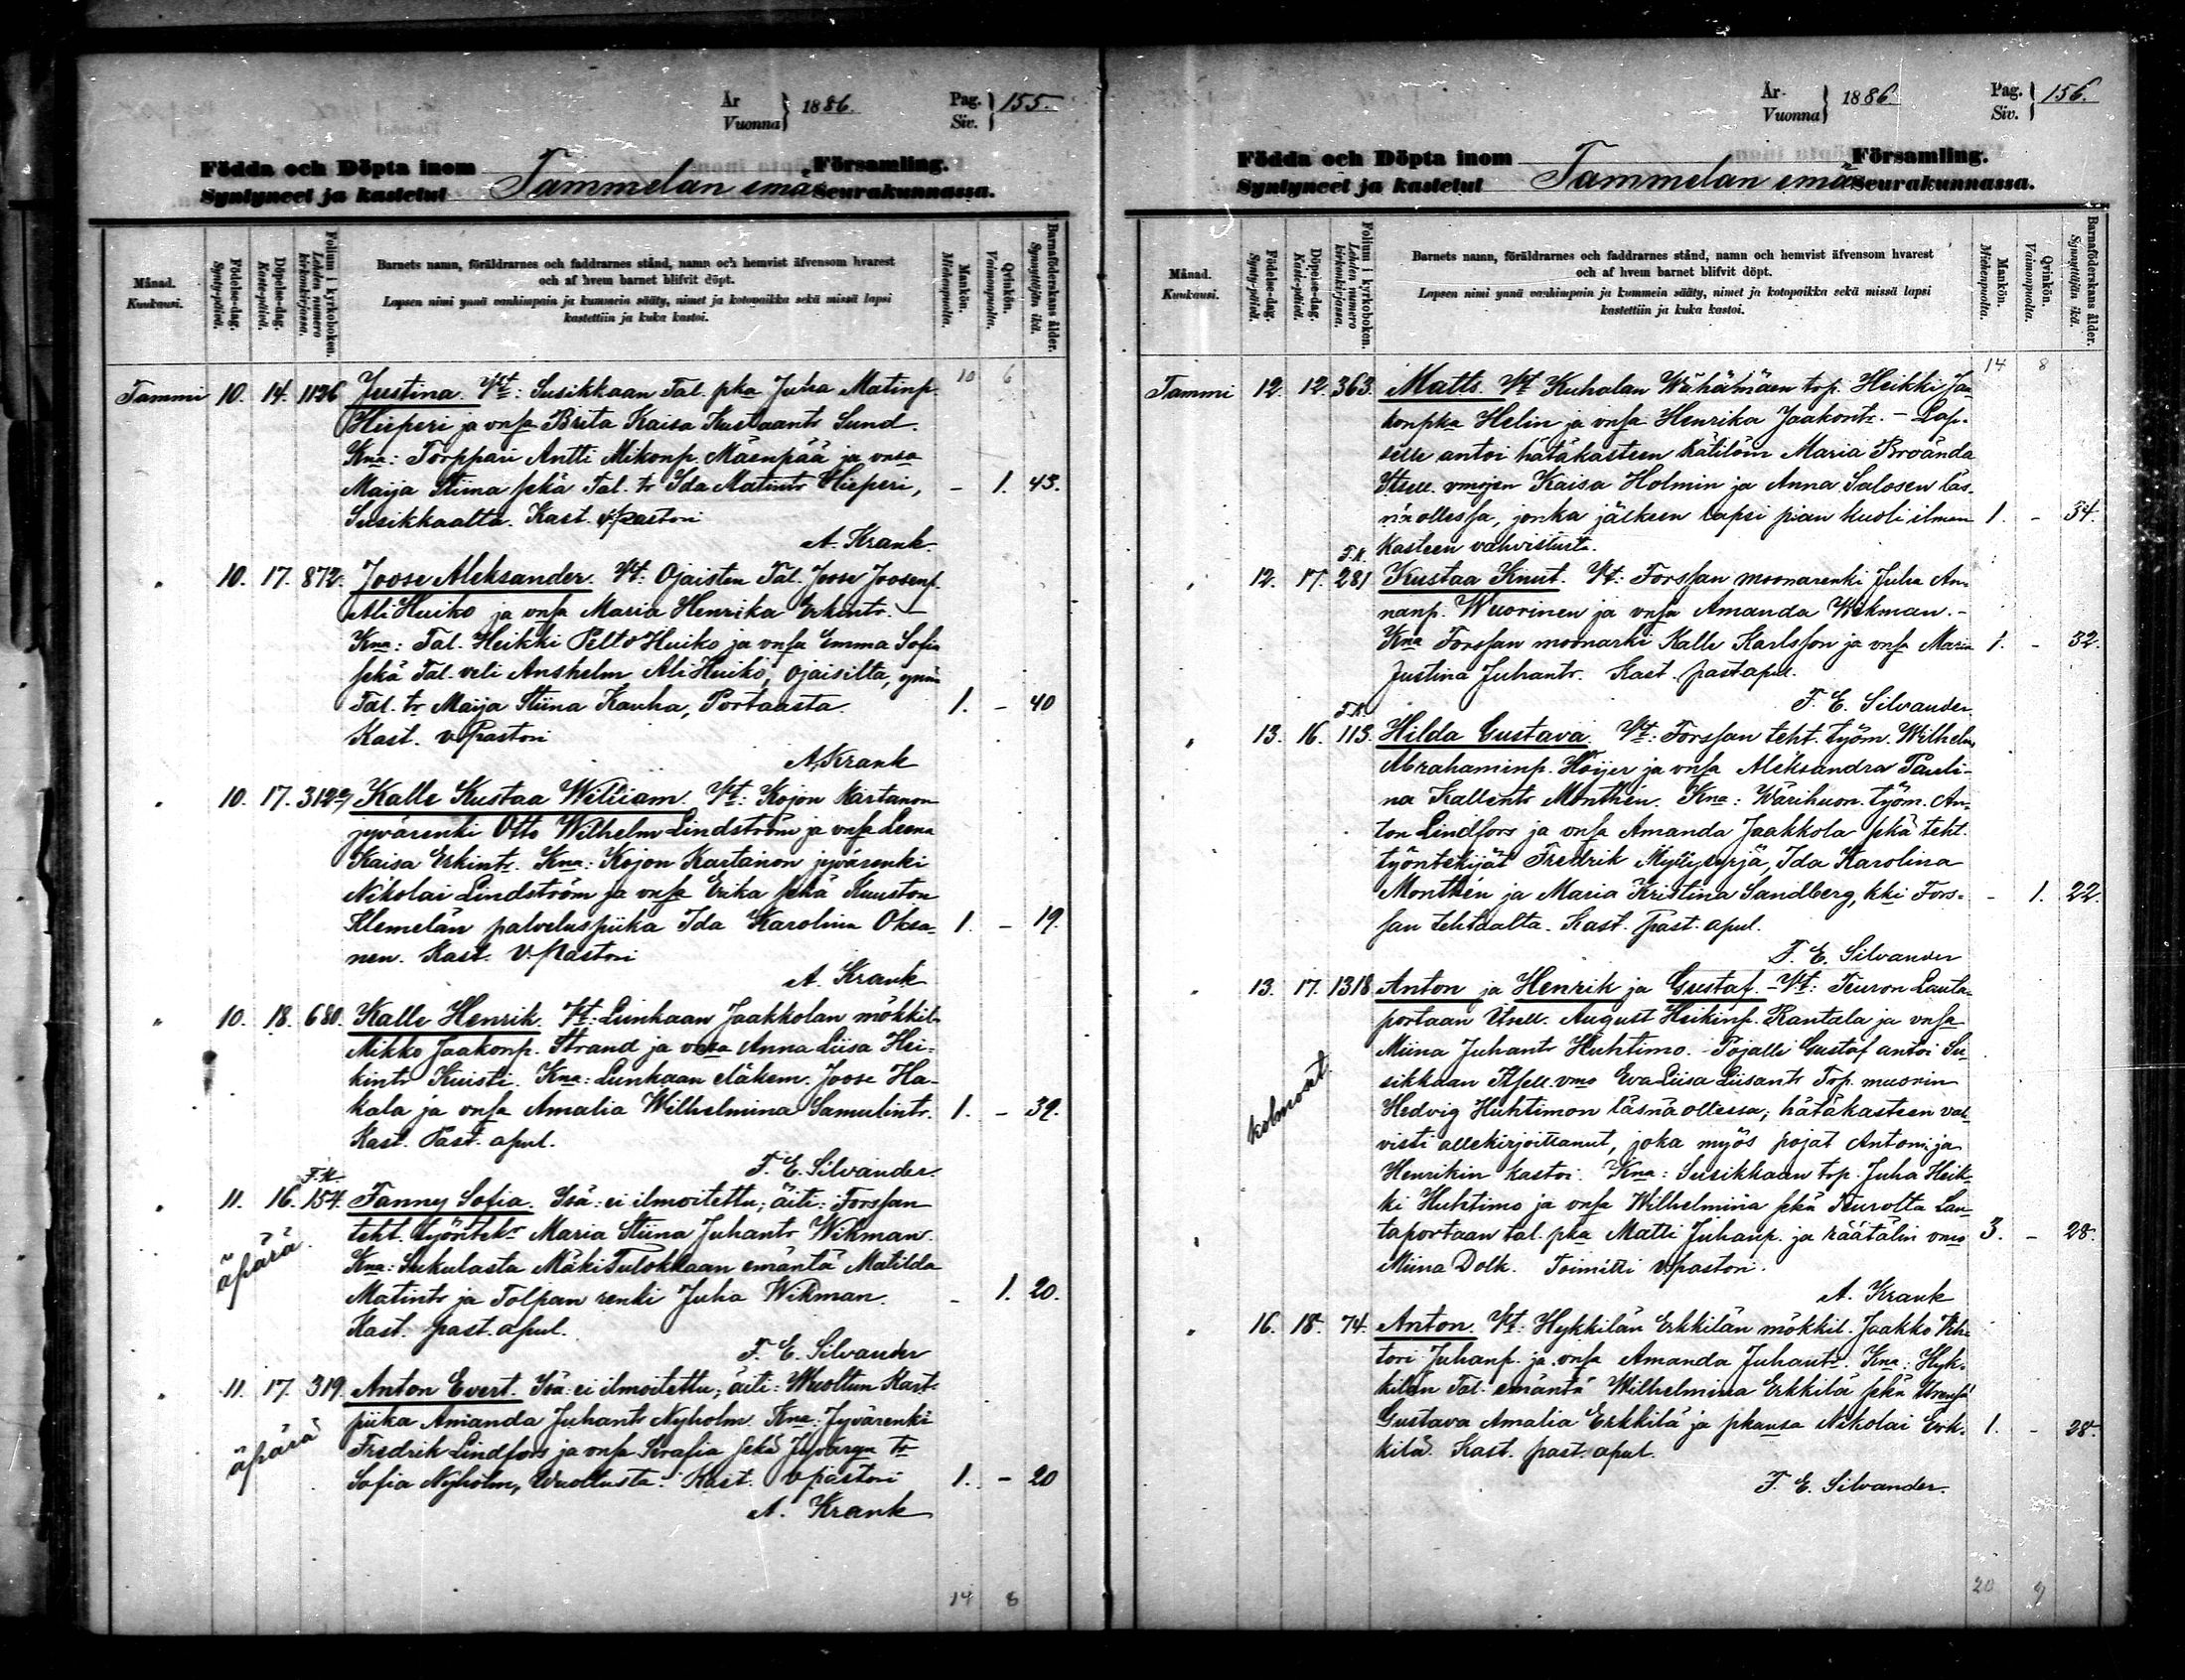 År
Vuonna } 1886.
Pag.
Siv. } 155.
Födda och Döpta inom
Syntyneet ja kastetut
Tammelan emä
Församling.
Seurakunnassa.
Månad.
Kuukausi.
Födelse-dag.
Synty-päivä.
Döpelse-dag.
Kaste-päivä.
Folium i kyrkoboken.
Lehden numero kirkonkirjassa.
Barnets namn, föräldrarnes och faddrarnes stånd, namn och hemvist äfvensom hvarest
och af hvem barnet blifvit döpt.
Lapsen nimi ynnä vanhimpain ja kummein sääty, nimet ja kotopaikka sekä missä lapsi
kastettiin ja kuka kastoi.
Mankön.
Miehenpuolta.
Qvinkön.
Vaimonpuolta.
Barnaföderskans ålder.
Synnyttäjän ikä.
10 6
Tammi 10. 14. 1126 Justina. Vt: Susikkaan Tal. pka Juha Matinp.
Hieperi ja vnsa Brita Kaisa Kustaantr Sund.
Kna: Torppari Antti Mikonp. Mäenpää ja vnsa
Maija Stiina sekä Tal. tr Ida Matintr Hieperi, - 1. 43.
Susikkaalta. Kast. v.pastori
A. Krank.
" 10. 17. 872. Joose Aleksander. Vt: Ojaisten Tal. Joose Joosenp.
Ali Huiko ja vnsa Maria Henrika Erkintr. -
Kna: Tal. Heikki Pelto Huiko ja vnsa Emma Sofia
sekä Tal. veli Anshelm Ali Huiko, Ojaisilta, ynnä
Tal. tr Maija Stiina Kauha, Portaasta 1. - 40
Kast. v.Pastori
A. Krank
" 10. 17. 312 Kalle Kustaa William. Vt: Kojon Kartanon
jyvärenki Otto Wilhelm Lindström ja vnsa Leena
Kaisa Erkintr. Kna: Kojon Kartanon jyvärenki
Nikolai Lindström ja vnsa Erika sekä Kuuston
Klemelän palveluspiika Ida Karolina Oksa- 1. - 19.
nen. Kast. V.pastori
A. Krank
" 10. 18. 680. Kalle Henrik. Vt: Lunkaan Jaakkolan mökkil.
Mikko Jaakonp. Strand ja vnsa Anna Liisa Hei-
kintr Kuisti. Kna: Lunkaan eläkem. Joose Ha-
kala ja vnsa Amalia Wilhelmina Samulintr. 1. - 39.
Kast. Past. apul.
F. E. Silvander.
F.K.
" 11. 16. 154. Fanny Sofia. Isä: ei ilmoitettu; äiti: Forssan
äpärä. teht. työntek. Maria Stiina Juhantr Wikman.
Kna: Sukulasta Mäki Tulokkaan emäntä Matilda
Matintr ja Tolpan renki Juha Wikman. - 1. 20.
Kast. past. apul.
F. E. Silvander
" 11. 17. 319. Anton Evert. Isä: ei ilmoitettu; äiti: Wuoltun Kart.
äpärä piika Amanda Juhantr Nyholm. Kna: Jyvärenki
Fredrik Lindfors ja vnsa Serafia sekä tr
Sofia Nyholm, Wuoltusta. Kast. v.pastori 1. - 20
A. Krank
14 8
År
Vuonna } 1886
Pag.
Siv. } 156.
Födda och Döpta inom
Syntyneet ja kastetut
Tammelan emä
Församling.
Seurakunnassa.
Månad.
Kuukausi.
Födelse-dag.
Synty-päivä.
Döpelse-dag.
Kaste-päivä.
Folium i kyrkoboken.
Lehden numero kirkonkirjassa.
Barnets namn, föräldrarnes och faddrarnes stånd, namn och hemvist äfvensom hvarest
och af hvem barnet blifvit döpt.
Lapsen nimi ynnä vanhimpain ja kummein sääty, nimet ja kotopaikka sekä missä lapsi
kastettiin ja kuka kastoi.
Mankön.
Miehenpuolta.
Qvinkön.
Vaimonpuolta.
Barnaföderskans ålder.
Synnyttäjän ikä.
14 8
Tammi 12. 12. 363. Matts. Vt Kuhalan Wähämäen trp. Heikki Jaa-
konpka Helin ja vnsa Henrika Jaakontr. - Lap-
selle antoi hätäkasteen kätilöin Maria Broända
Itsell. vmojen Kaisa Holmin ja Anna Salosen läs-
nä ollessa, jonka jälkeen lapsi pian kuoli ilman 1. - 34.
kasteen vahvistusta.
F.K.
" 12. 17. 281 Kustaa Knut. Vt: Forssan moonarenki Juha An-
nanp. Wuorinen ja vnsa Amanda Wikman. -
Kna Forssan moonarki Kalle Karlsson ja vnsa Maria 1. - 32.
Justina Juhantr. Kast. past apul.
F. E. Silvander.
F.K.
" 13. 16. 113. Hilda Gustava. Vt: Forssan teht. työm. Wilhelm
Abrahaminp. Höijer ja vnsa Aleksandra Pauli-
na Kallentr Monthén. Kna: Wärihuon. työm. An-
ton Lindfors ja vnsa Amanda Jaakkola sekä teht.
työntekijät Fredrik Myllyserjä, Ida Karolina
Monthén ja Maria Kristina Sandberg, kki Fors- - 1. 22.
san tehtaalta. Kast. past. apul.
F. E. Silvander
" 13. 17. 1318 Anton ja Henrik ja Gustaf. - Vt: Teuron Lauta-
portaan Itsell. August Heikinp. Rantala ja vnsa
Miina Juhantr Huhtimo. - Pojalle Gustaf antoi Su-
sikkaan Itsell. vmo Eva Liisa Liisantr Trp. muorin
kolmoset. Hedvig Huhtimon läsnä ollessa, hätäkasteen vah-
visti allekirjoittanut, joka myös pojat Antonin ja
Henrikin kastoi. Kna: Susikkaan trp. Juha Heik-
ki Huhtimo ja vnsa Wilhelmina sekä Teurolta Lau-
taportaan tal. pka Matti Juhanp. ja räätälin vmo 3. - 28.
Miina Dolk. Toimitti v.pastori.
A. Krank
" 16. 18. 74. Anton. Vt: Hykkilän Erkkilän mökkil. Jaakko Vih-
tori Juhanp. ja vnsa Amanda Juhantr. Kna: Hyk-
kilän Tal. emäntä Wilhelmina Erkkilä sekä
Gustava Amalia Erkkilä ja pkansa Nikolai Erk- 1. - 28.
kilä. Kast. past. apul.
F. E. Silvander.
20 9